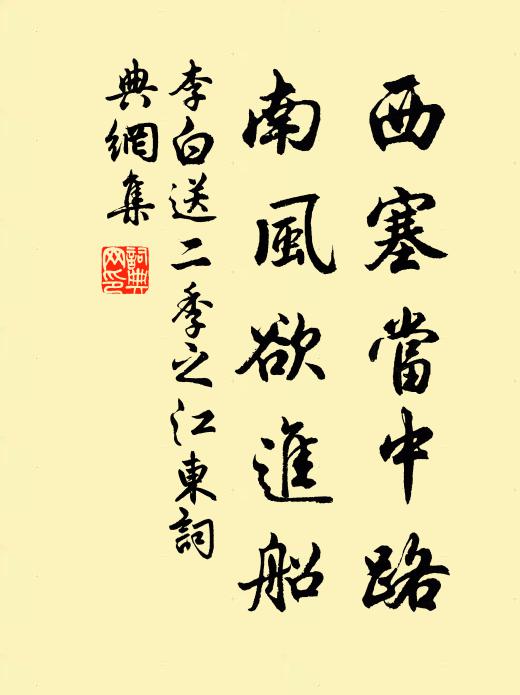 西塞當中路
南風欲進船
李白送二季之江東詞
典網集
詞典
网印